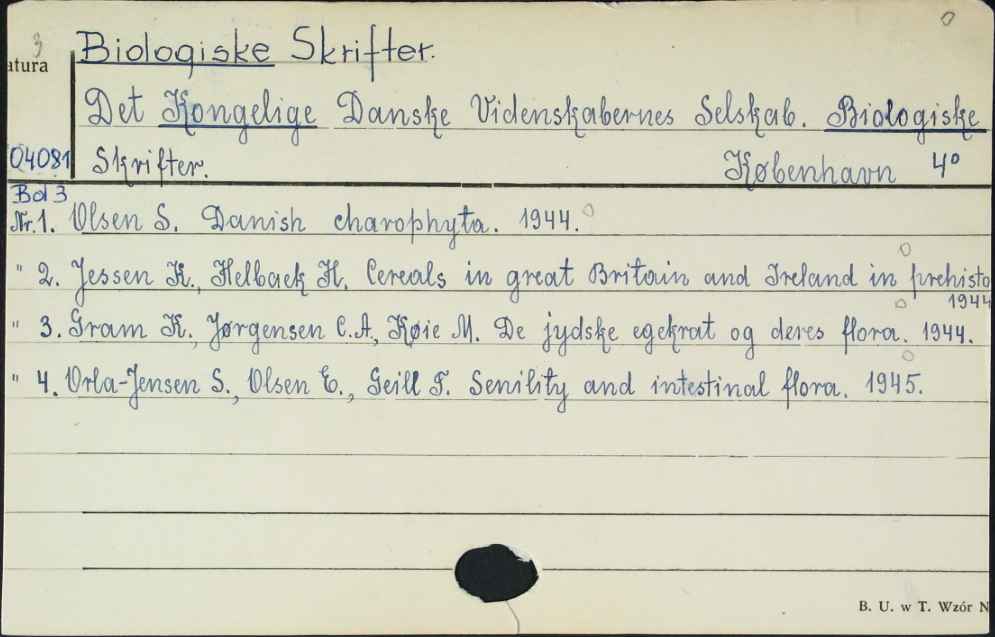 3
atura
Biologiske Skrifter.
Det Kongelige Danske Videnskabernes Selskab. Biologiske
04081 Skrifter. København 4º
Bd 3
Nr. 1. Olsen S. Danish charophyta. 1944.
" 2. Jessen K., Helbaek H. Cereals in great Britain and Ireland in prehisto
1944
" 3. Gram K., Jørgensen C.A., Køie M. De jydske egekrat og deres flora. 1944.
" 4. Orla-Jensen S., Olsen E., Geill T. Senility and intestinal flora. 1945.
B. U. w T. Wzór N